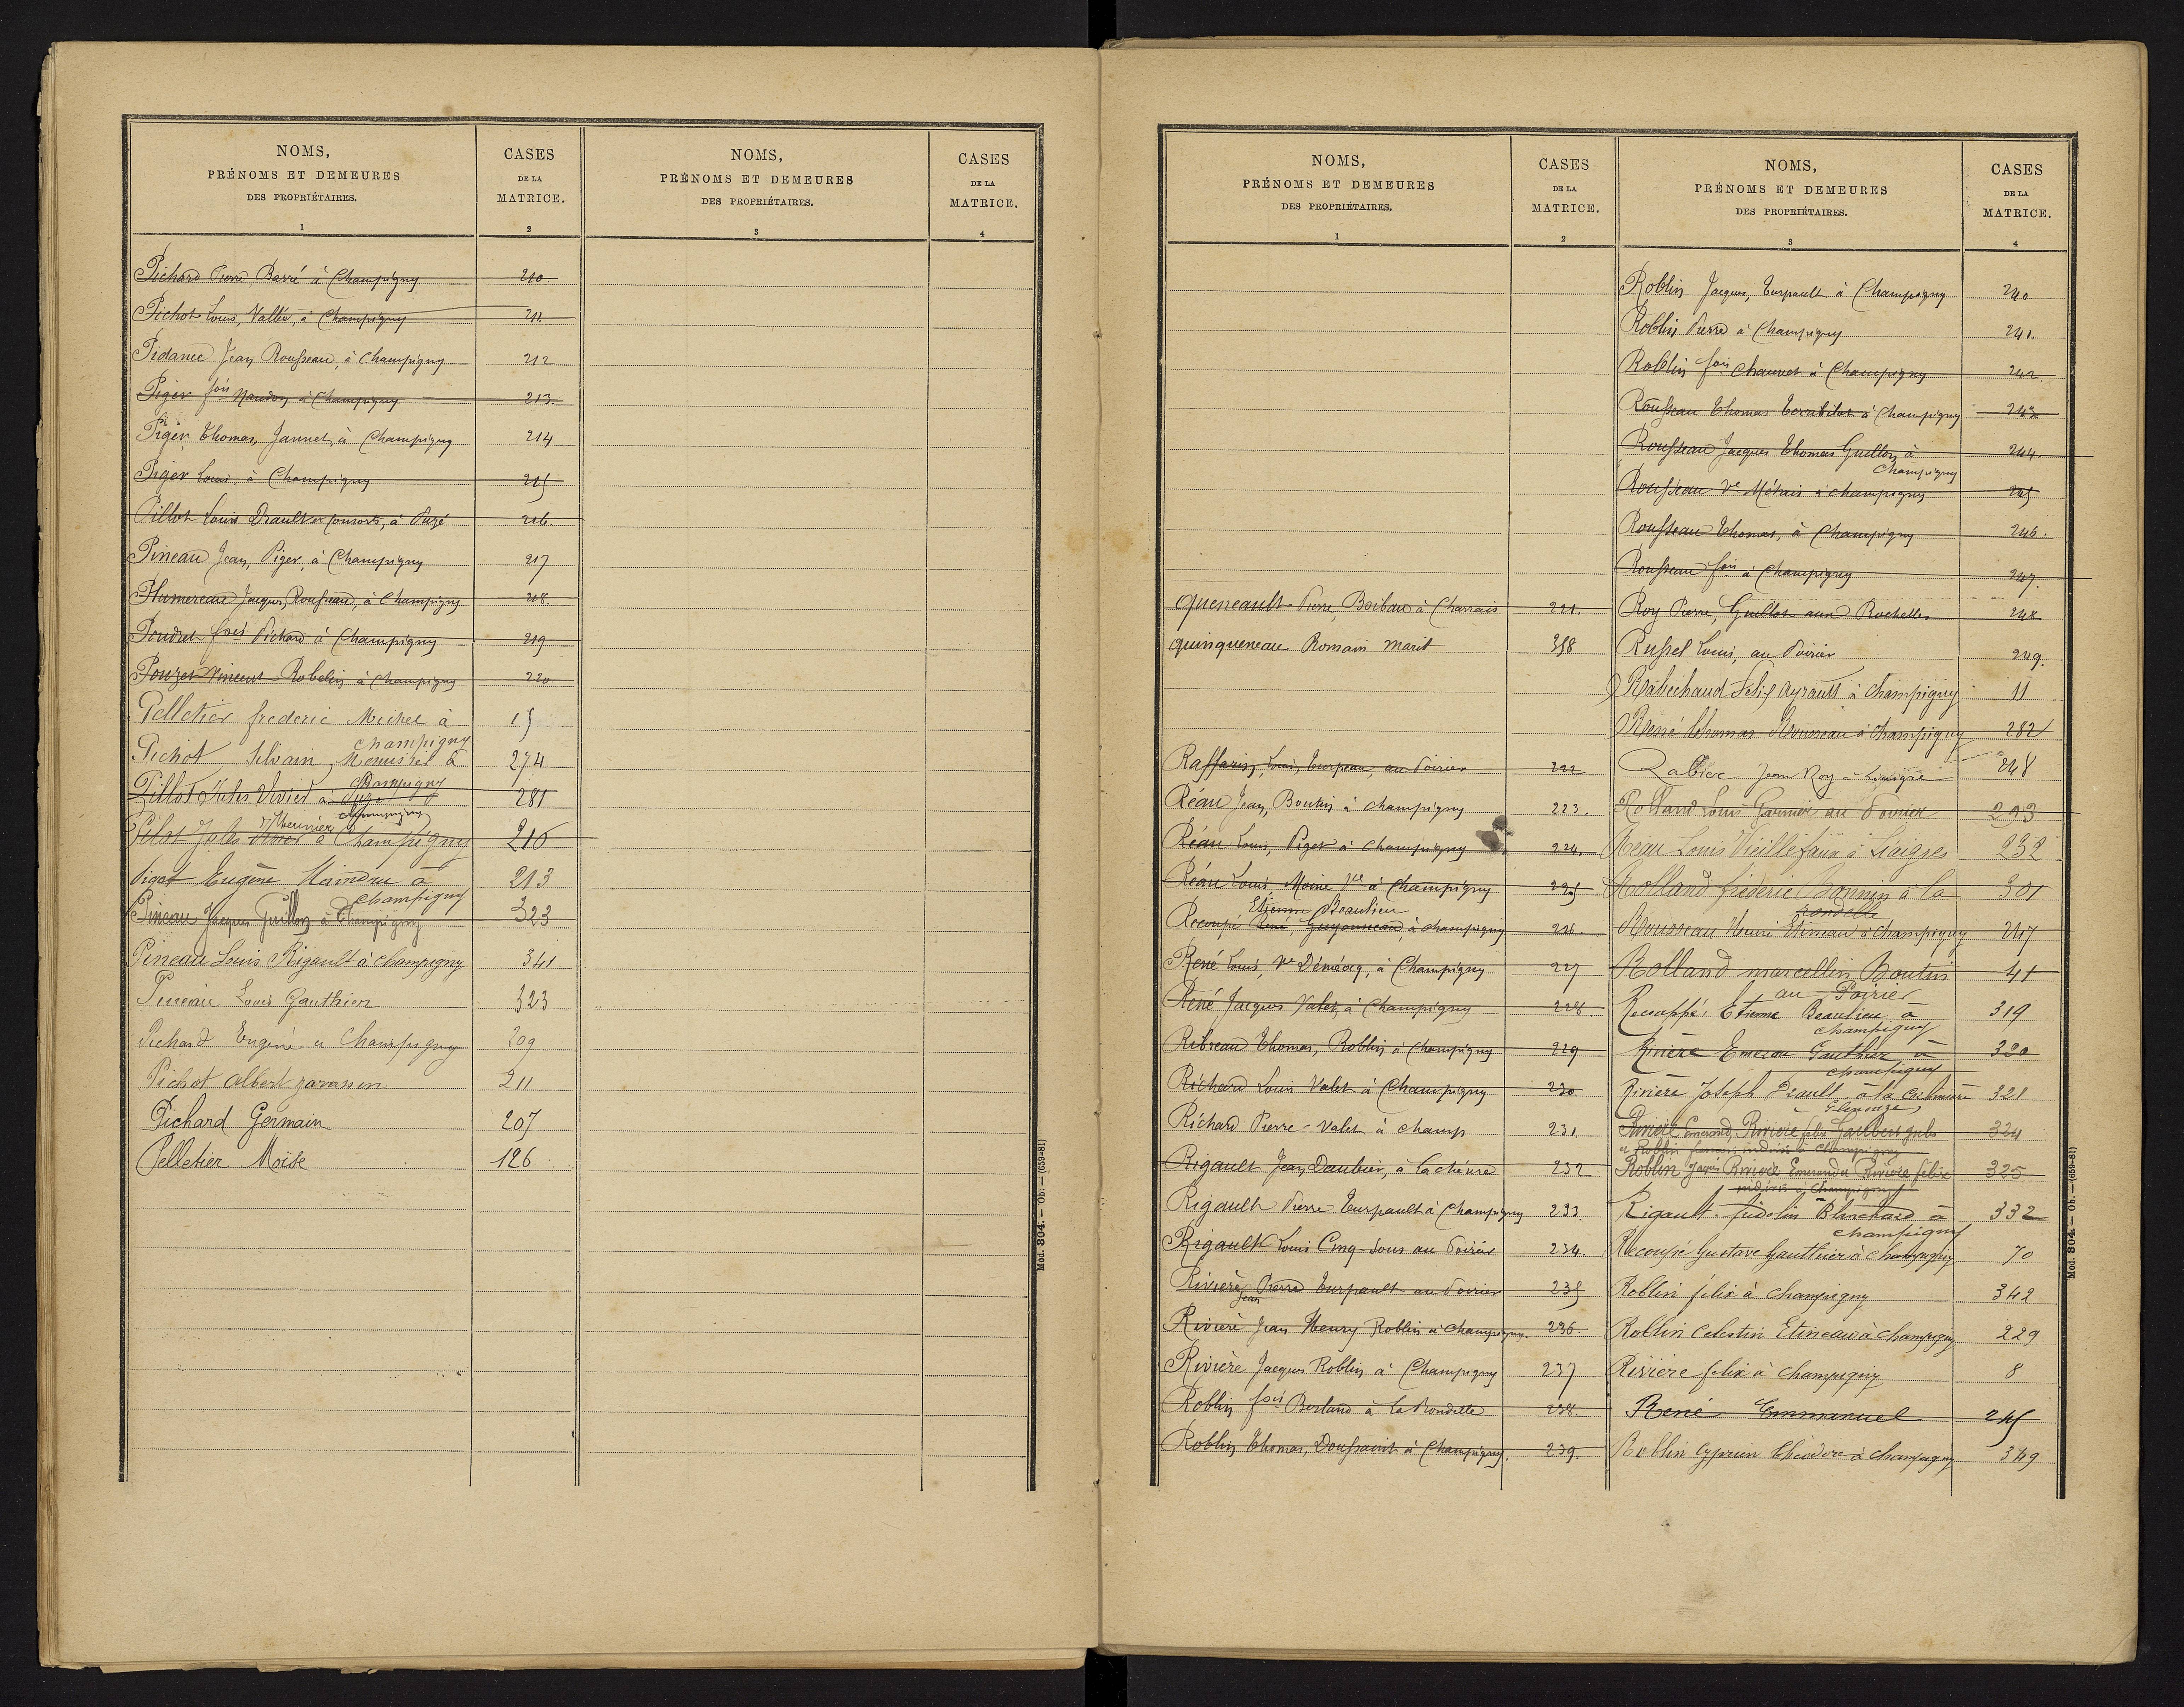 NOMS,
PRÉNOMS ET DEMEURES
DES PROPRIÉTAIRES.
1
CASES
DE LA
MATRICE.
2
NOMS,
PRÉNOMS ET DEMEURES
DES PROPRIÉTAIRES.
3
CASES
DE LA
MATRICE.
4
Pichard Pierre Barré à Champigny 210.
Pichot Louis, Vallée, à Champigny 211
Pidance Jean Rousseau, à Champigny 212
Piger fois Naudon à Champigny 213.
Piger Thomas, Jaunet, à Champigny 214
Piger Louis, à Champigny 215
Pillot Louis Drault et consorts, à Puzé 216.
Pineau Jean, Piger, à Champigny 217
Plumereau Jacques, Rousseau, à Champigny 218.
Poudret fois Pichard à Champigny 219
Pouzet Vincent Robelin à Champigny 220
Pelletier frederic Michel à 15
champigny
Pichot Silvain Menissiel à 274
Champigny
Pillot Jules Vivier à Puzé 281
champigny
Meunier
Pilot Jules Vivier à Champigny 216
Pigot Eugène Maindru à 213
champigny
Pineau Jacques Guillon à Champigny 323
Pineau Louis Rigault à champigny 341
Pineau Louis Gauthier 323
Pichard Eugène à Champigny 209
Pichot Albert 211
Pichard Germain 207
Pelletier Moïse 126
Mod. 804. — Ob. — (659-81)
NOMS,
PRÉNOMS ET DEMEURES
DES PROPRIÉTAIRES.
1
CASES
DE LA
MATRICE.
2
Queneault Pierre, Boibau à Charrais 221.
quinqueneau Romain marit 358
Raffarin, Louis, Turpeau, au Poirier 222
Réau Jean, Boutin à champigny 223.
Réau Louis, Piger à champigny 224.
Réau Louis, Moine Ve à Champigny 225
Etienne Beaulieu
Recoupé René, Guyonneau, à champigny 226.
René Louis, Ve Démécq, à Champigny 227
René Jacques Valet, à Champigny 228
Ribreau Thomas, Roblin à Champigny 229
Richard Louis Valet à Champigny 230
Richard Pierre-Valet à champ 231
Rigault Jean Daubier, à la chèvre 232
Rigault Pierre Turpault à Champigny 233
Rigault Louis Cinq-Sous au Poirier 234.
Rivière, Pierre Turpault au Poirier 235
Jean
Rivière Jean Henry Roblin à champigny. 236.
Rivière Jacques Roblin à Champigny 237
Roblin fois Berland à la Rondelle 238.
Roblin Thomas, Doussaint à Champigny. 239.
NOMS,
PRÉNOMS ET DEMEURES
DES PROPRIÉTAIRES.
3
CASES
DE LA
MATRICE.
4
Roblin Jacques, Turpault à Champigny 240
Roblin Pierre à Champigny 241.
Roblin fois Chauvet à Champigny 242
Rousseau Thomas à Champigny 243
Rousseau Jacques Thomas Guillon à 244.
Champigny
Rousseau Ve Métais à champigny 245
Rousseau Thomas, à Champigny 246.
Rousseau fois à Champigny 247.
Roy Pierre, Guillot aux Rochelles 248
Russel Louis, au Poirier 249.
Rabechaud Félix Ayrault à Champigny 11
René Thomas Rousseau à Champigny 282
Jean Roy à 248
Rolland Louis Garnier au Poirier 293
Reau Louis Vieillefaux à Liaigres 232
Rolland fréderic Bonnin à la 301
rondelle
Rousseau Henri Etineau à Champigny 247
Rolland marcellin Boutin 41
au Poirier
Recouppé Etienne Beaulieu à 319
champigny
Rivière Emeran Gauthier à 320
champigny
Rivière Joseph Drault à la 321
Rivière Emerand, Rivière felix 324
et Roblin indivis à Champigny
Roblin Jaques Rivière Emerand et Rivière felix 325
indivis à Champigny
Rigault fidelin Blanchard à 332
champigny
Recoupé Gustave Gauthier à champigny 70
Roblin félix à champigny 342
Roblin Celestin Etineau à champigny 229
Rivière felix à champigny 8
René Emmanuel 245
Roblin Cyprien Théodore à champigny 349
Mod. 804. — Ob. — (659-81)